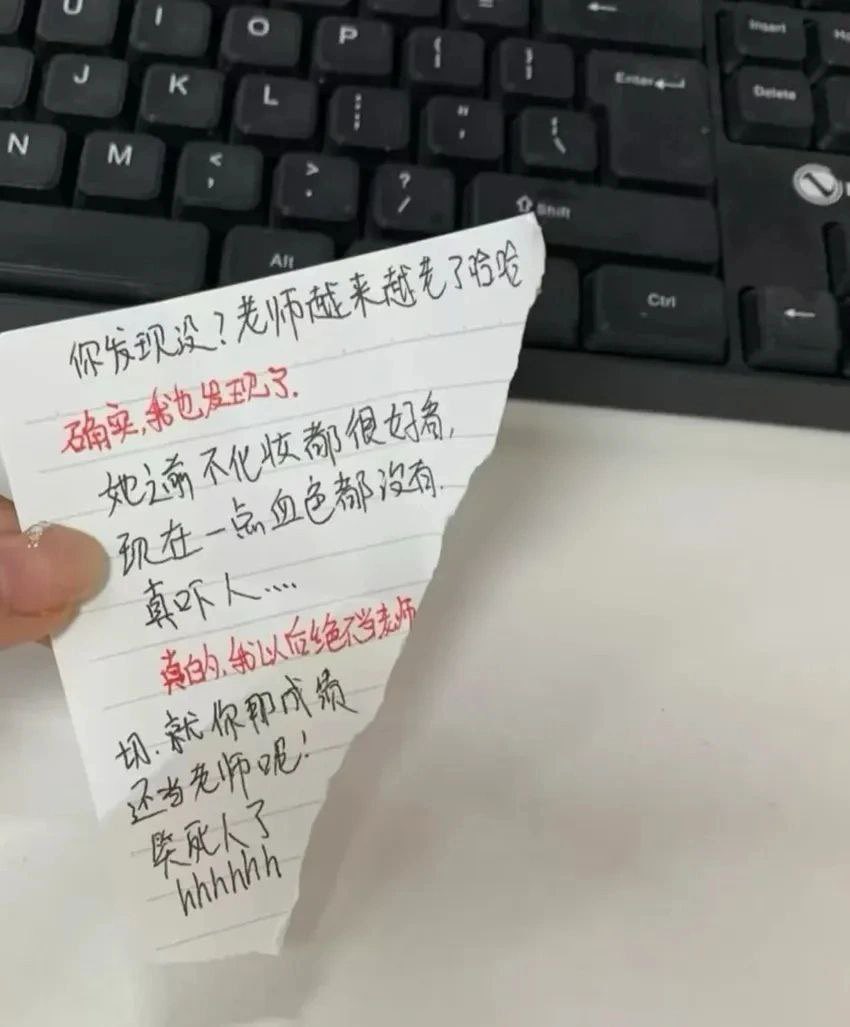 U
I
O
P
{
[
}
]
=
Insert
J
K
L
:
;
"
'
|
\
Enter
Delete
N
M
<
,
>
.
?
/
Shift
Alt
Ctrl
你发现没？老师越来越老了哈哈
确实，我也发现了.
她之前不化妆都很好看，
现在一点血色都没有.
真吓人....
真的，我以后绝不当老师
切.就你那成绩
还当老师呢！
笑死人了
hhhhhh